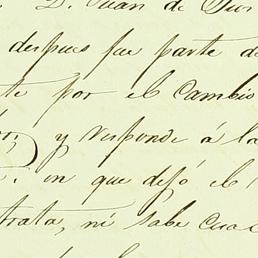 D. Juan de Dios
despues fue parte de
te por el Cambio
y responde á la
en que dejó el
trata, ni sabe cua